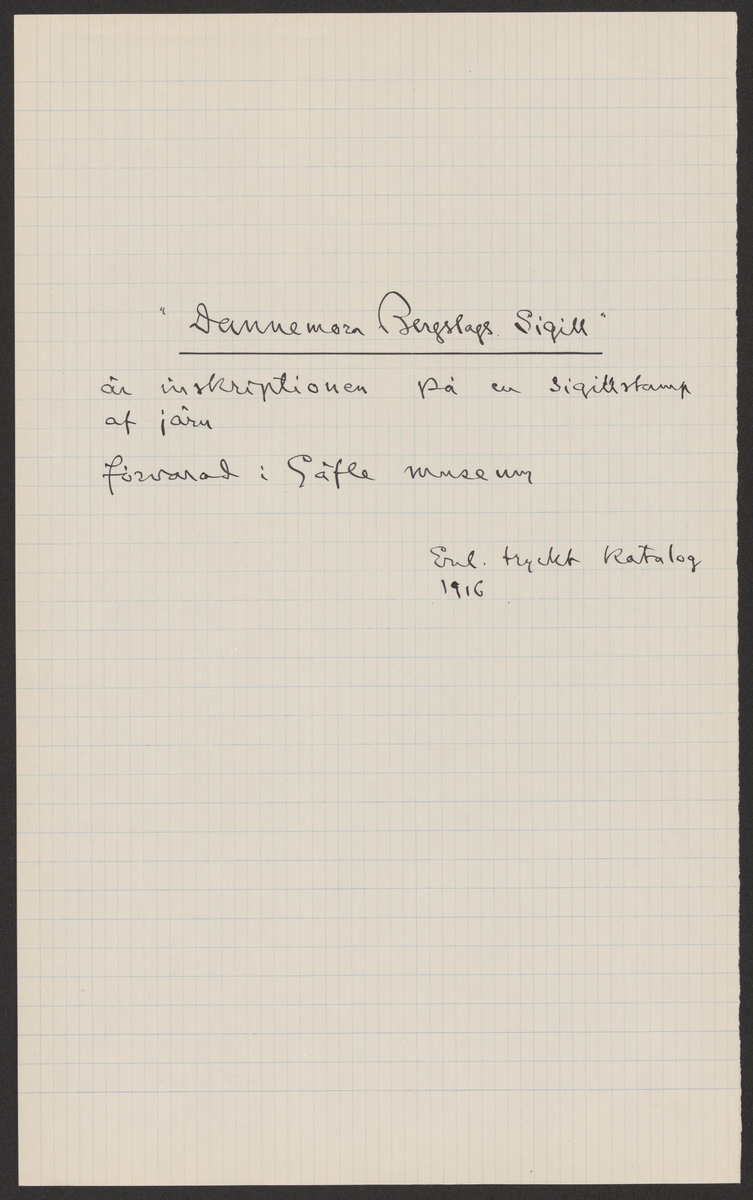 "Dannemora Bergslags Sigill"
är inskriptionen på en sigillstamp
af järn
förvarad i Gäfle museum
Enl. tryckt katalog
1916